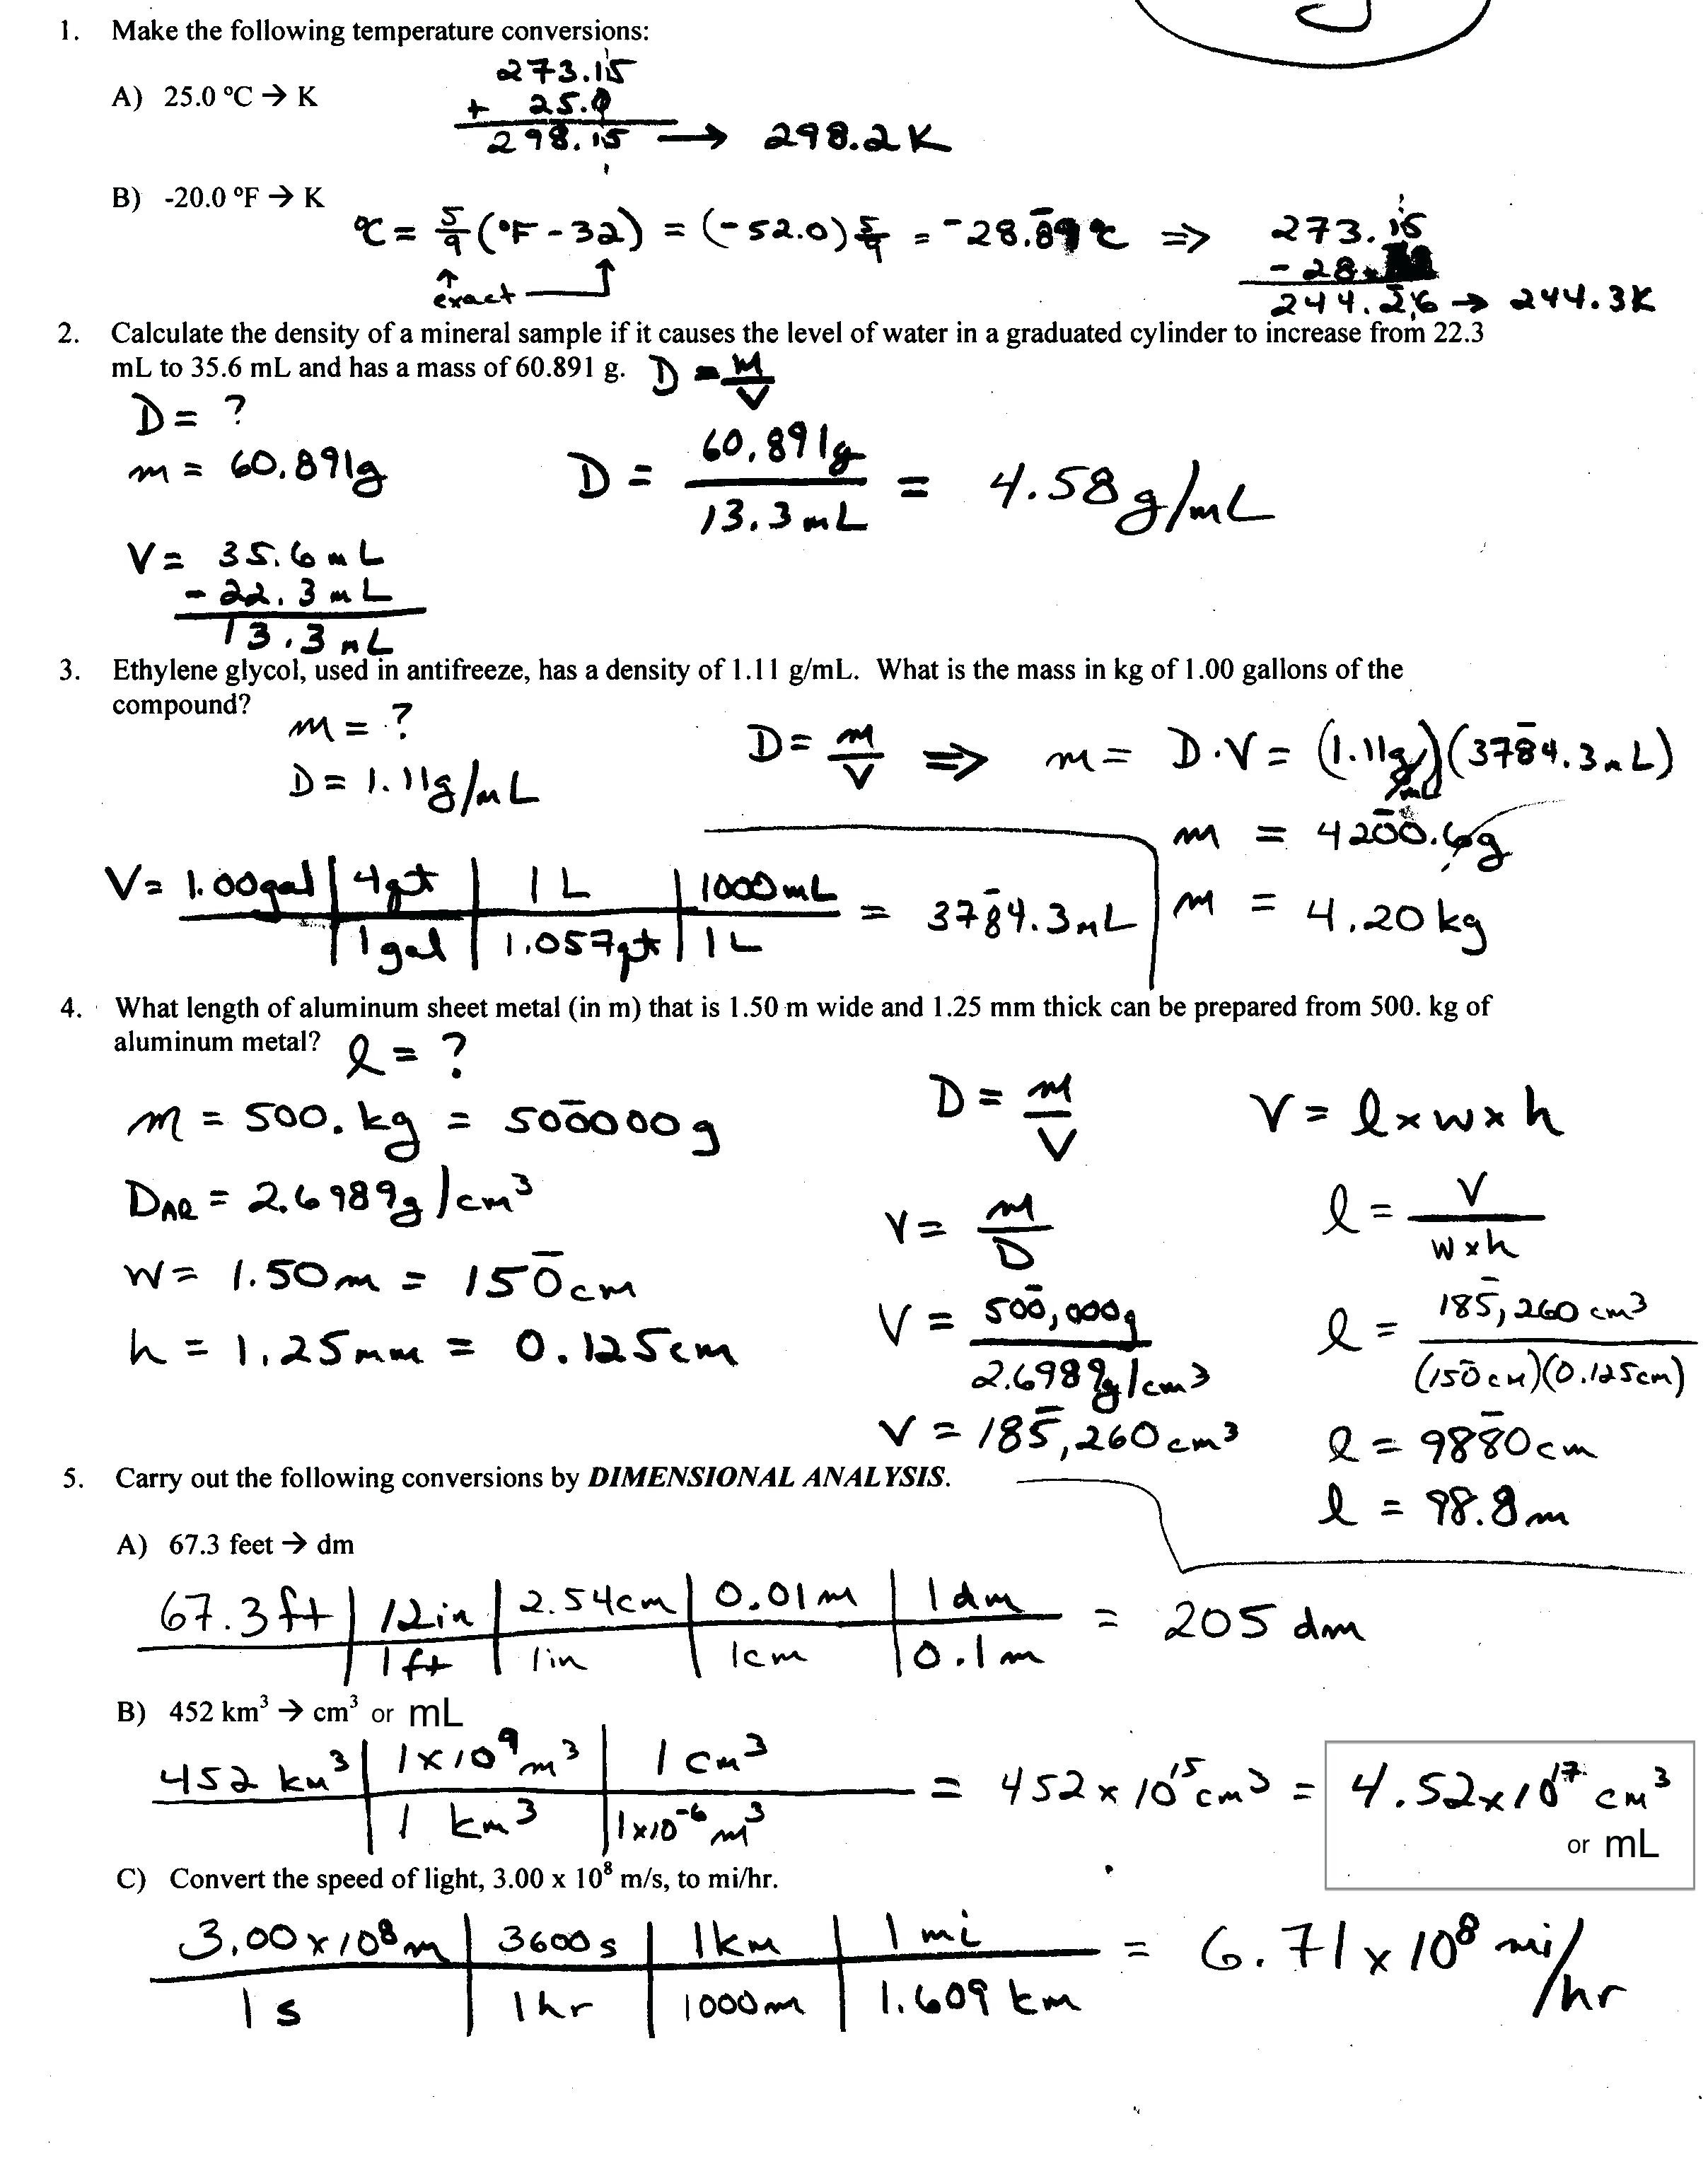 1. Make the following temperature conversions:
273.15
A) 25.0 ºC → K
+ 25.0
298.15 → 298.2K
B) -20.0 ºF → K
℃ = 5/9 (°F - 32) = (-52.0) 5/9 = -28.89 ℃ ⇒ 273.15
- 28.
↑ exact ↑
244.26 → 244.3K
2. Calculate the density of a mineral sample if it causes the level of water in a graduated cylinder to increase from 22.3
mL to 35.6 mL and has a mass of 60.891 g. D = m/V
D = ?
m = 60.891g
D = 60.891g / 13.3 mL = 4.58 g/mL
V = 35.6 mL
- 22.3 mL
13.3 mL
3. Ethylene glycol, used in antifreeze, has a density of 1.11 g/mL. What is the mass in kg of 1.00 gallons of the
compound?
m = ?
D = 1.11g/mL
D = m/V ⇒ m = D·V = (1.11g/mL)(3784.3mL)
m = 4200.6g
V = 1.00gal | 4qt | 1 L | 1000mL
1gal | 1.057qt | 1 L
= 3784.3mL
m = 4.20 kg
4. What length of aluminum sheet metal (in m) that is 1.50 m wide and 1.25 mm thick can be prepared from 500. kg of
aluminum metal? l = ?
m = 500. kg = 500000g
D = m/V
V = l x w x h
DAl = 2.6989g/cm³
V = m/D
l = V / w x h
w = 1.50m = 150cm
h = 1.25mm = 0.125cm
V = 500,000g / 2.6989g/cm³
l = 185,260 cm³ / (150cm)(0.125cm)
V = 185,260cm³
l = 9880cm
l = 98.8m
5. Carry out the following conversions by DIMENSIONAL ANALYSIS.
A) 67.3 feet → dm
67.3ft | 12in | 2.54cm | 0.01m | 1dm
1ft | 1in | 1cm | 0.1m
= 205 dm
B) 452 km³ → cm³ or mL
452 km³ | 1x10⁹m³ | 1 cm³
1 km³ | 1x10⁻⁶ m³
= 452 x 10¹⁵ cm³ = 4.52x10¹⁷ cm³
or mL
C) Convert the speed of light, 3.00 x 10⁸ m/s, to mi/hr.
3.00 x 10⁸m | 3600s | 1km | 1 mi
1 s | 1hr | 1000m | 1.609 km
= 6.71 x 10⁸ mi/hr